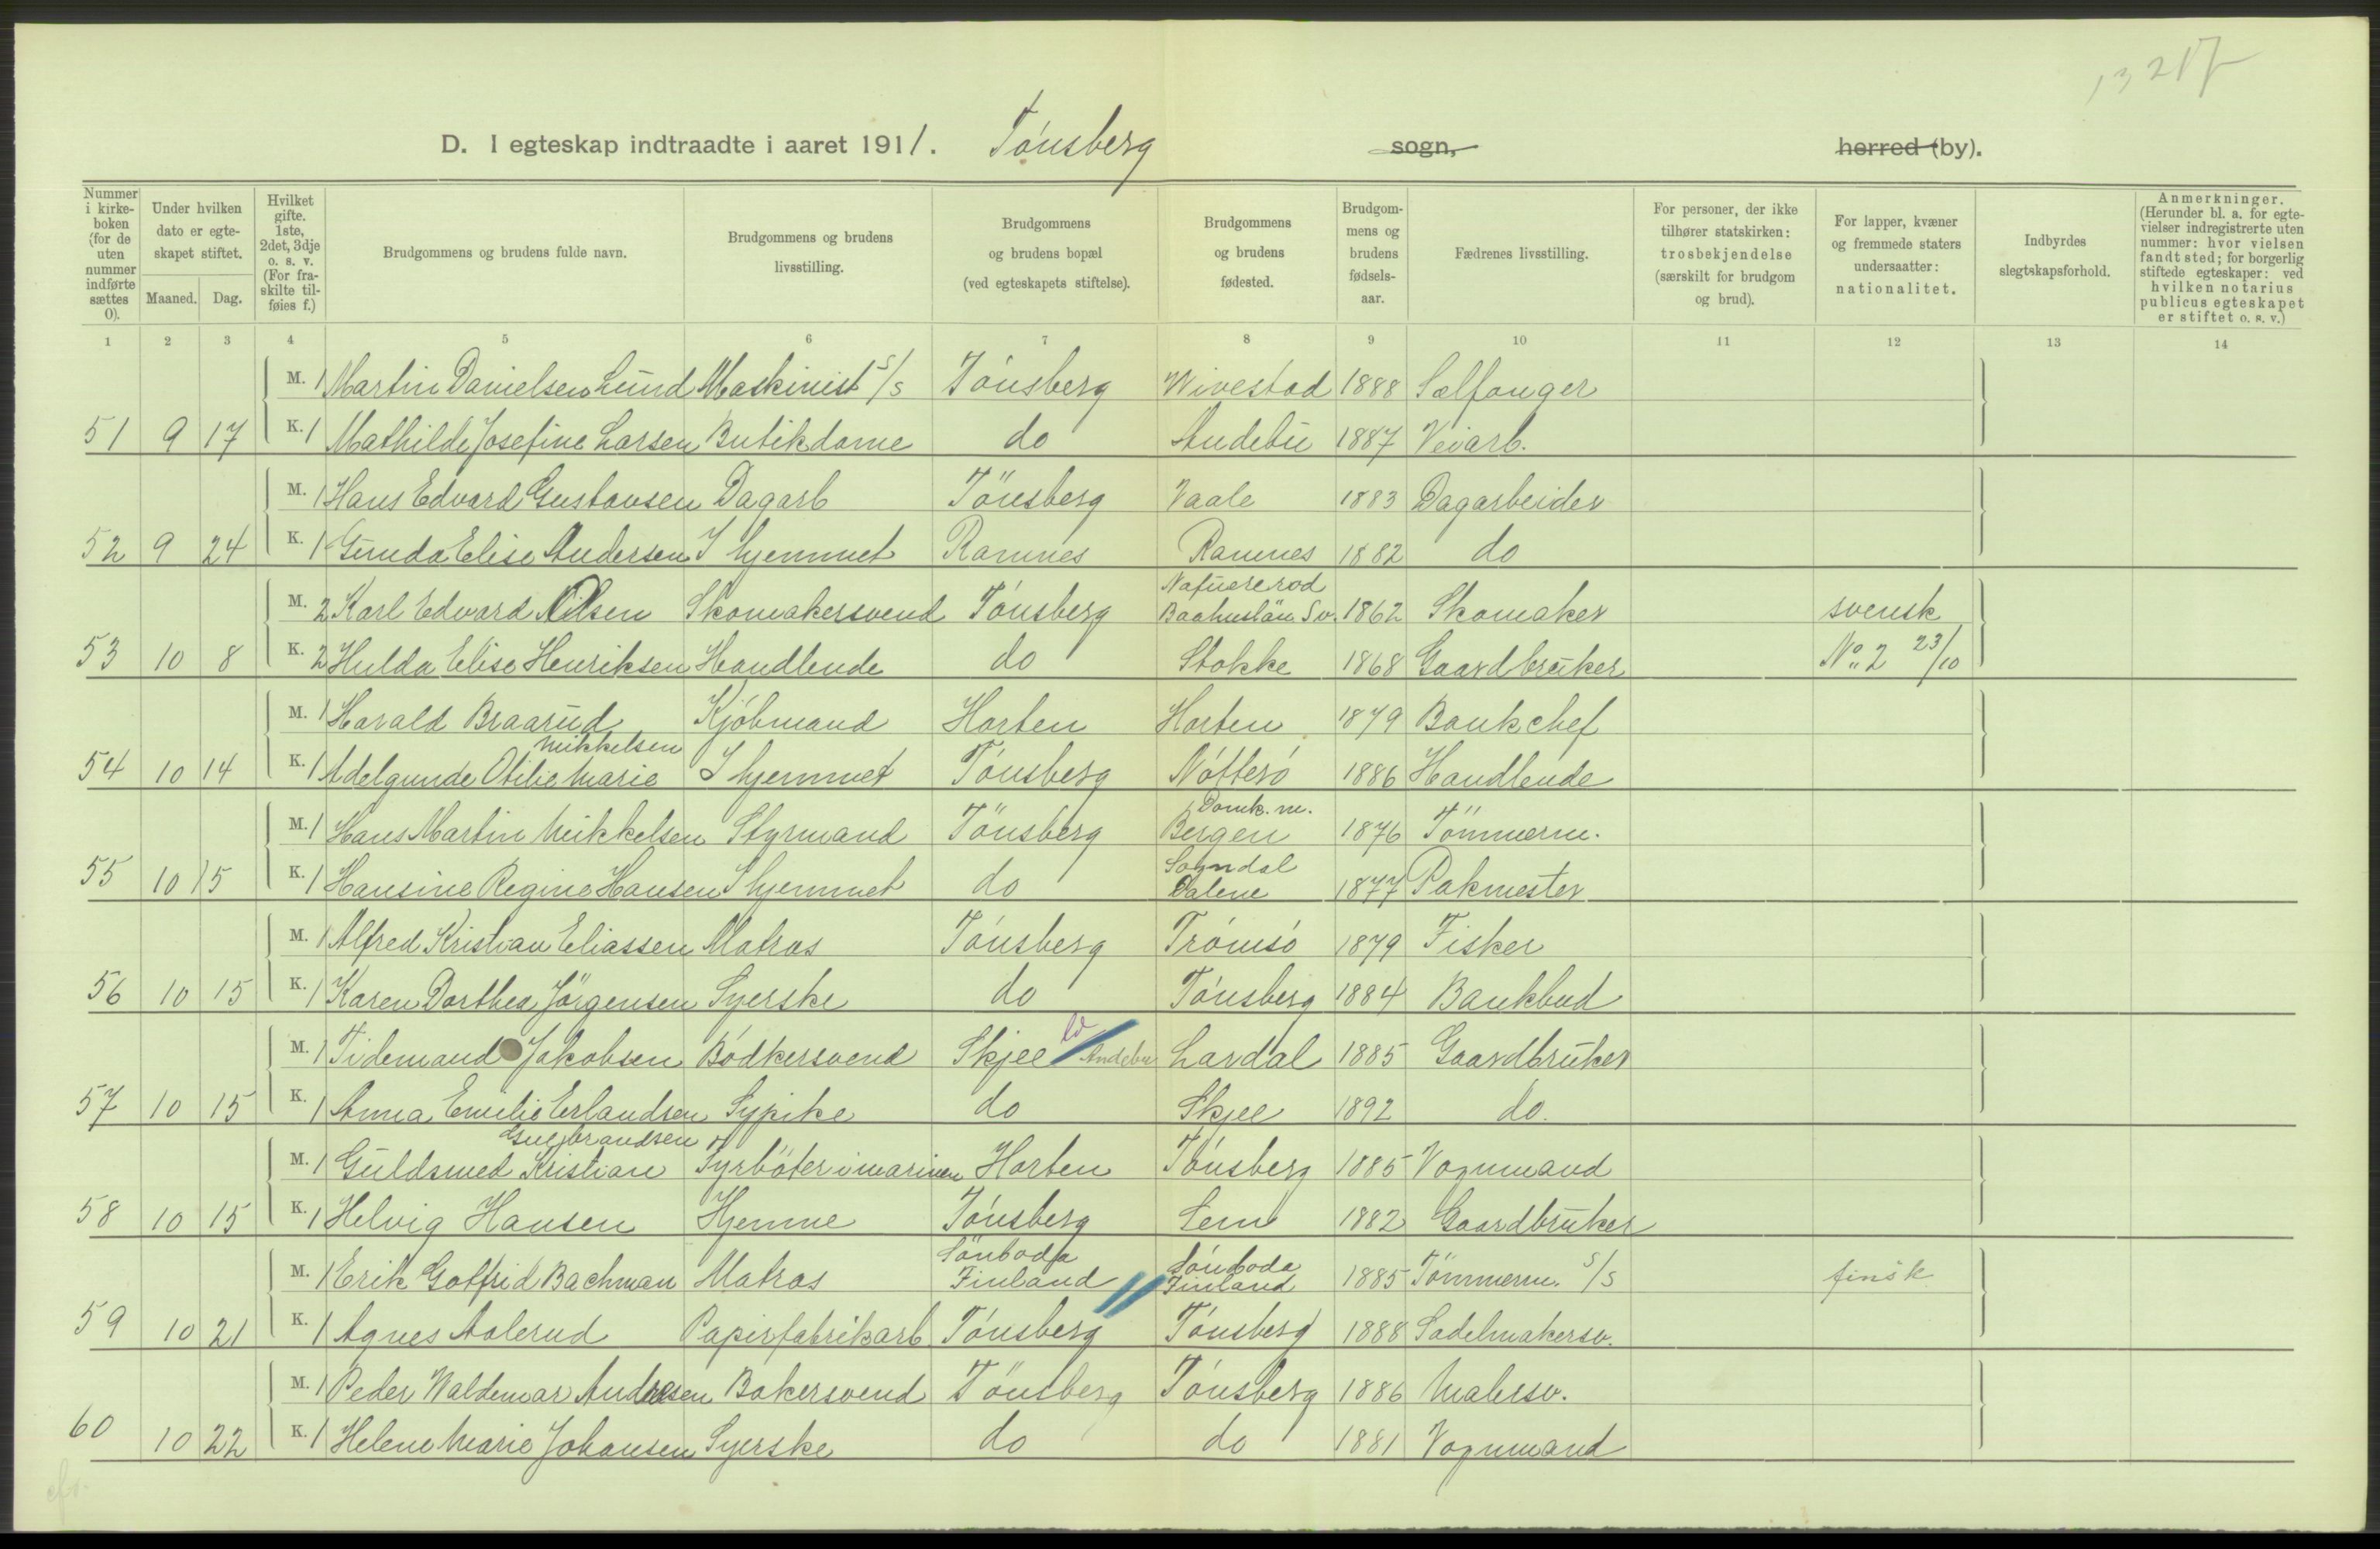 13217
D. I egteskap indtraadte i aaret 1911. Tönsberg sogn, herred (by).
Nummer i kirkeboken (for de uten nummer indførte sættes 0).
Under hvilken dato er egteskapet stiftet.
Maaned. Dag.
Hvilket gifte. 1ste, 2det, 3dje o. s. v. (For fraskilte tilføies f.)
Brudgommens og brudens fulde navn.
Brudgommens og brudens livsstilling.
Brudgommens og brudens bopæl (ved egteskapets stiftelse).
Brudgommens og brudens fødested.
Brudgommens og brudens fødselsaar.
Fædrenes livsstilling.
For personer, der ikke tilhører statskirken: trosbekjendelse (særskilt for brudgom og brud).
For lapper, kvæner og fremmede staters undersaatter: nationalitet.
Indbyrdes slegtskapsforhold.
Anmerkninger. (Herunder bl. a. for egtevielser indregistrerte uten nummer: hvor vielsen fandt sted; for borgerlig stiftede egteskaper: ved hvilken notarius publicus egteskapet er stiftet o. s. v.)
1 2 3 4 5 6 7 8 9 10 11 12 13 14
M. 1 Martin Danielsen Lund Maskinist S/S Tönsberg Vivestad 1888 Sælfanger
51 9 17 K. 1 Mathilde Josefine Larsen Butikdame do Andebu 1887 Veiarb.
M. 1 Hans Edvard Gustavsen Dagarb Tönsberg Vaale 1883 Dagarbeider
52 9 24 K. 1 Gunda Elise Andersen I hjemmet Ramnes Ramnes 1882 do
M. 2 Karl Edvard Olsen Skomakersvend Tönsberg Baahuslän Sv. 1862 Skomaker svensk
53 10 8 K. 2 Hulda Elise Henriksen Handlende do Stokke 1868 Gaardbruker No. 2 23/10
M. 1 Harald Braarud Kjöbmand Horten Horten 1879 Bankchef
Mikkelsen
54 10 14 K. 1 Adelgunde Otilie Marie I hjemmet Tönsberg Nötterö 1886 Handlende
Domk. m.
M. 1 Hans Martin Mikkelsen Styrmand Tönsberg Bergen 1876 Tömmerm.
Sogndal
55 10 15 K. 1 Hansine Regine Hansen I hjemmet do Dalene 1877 Pakmester
M. 1 Alfred Kristian Eliassen Matros Tönsberg Trömsö 1879 Fisker
56 10 15 K. 1 Karen Dorthea Jörgensen Syerske do Tönsberg 1884 Bankbud
M. 1 Tidemand Jakobsen Bödkersvend Skjee Andebu Lardal 1885 Gaardbruker
57 10 15 K. 1 Anna Emilie Erlandsen Sypike do Skjee 1892 do.
Gulbrandsen
M. 1 Guldsmed Kristian Fyrböter i marinen Horten Tönsberg 1885 Vognmand
58 10 15 K. 1 Helvig Hansen Hjemme Tönsberg Sem 1882 Gaardbruker
Sönboda Sönboda
M. 1 Erik Gotfrid Bachman Matros Finland Finland 1885 Tömmerm. S/S finsk
59 10 21 K. 1 Agnes Aalerud Papirfabrikarb. Tönsberg Tönsberg 1888 Sadelmakersv.
M. 1 Peder Waldemar Andresen Bakersvend Tönsberg Tönsberg 1886 Malersv.
60 10 22 K. 1 Helene Marie Johansen Syerske do do 1881 Vognmand